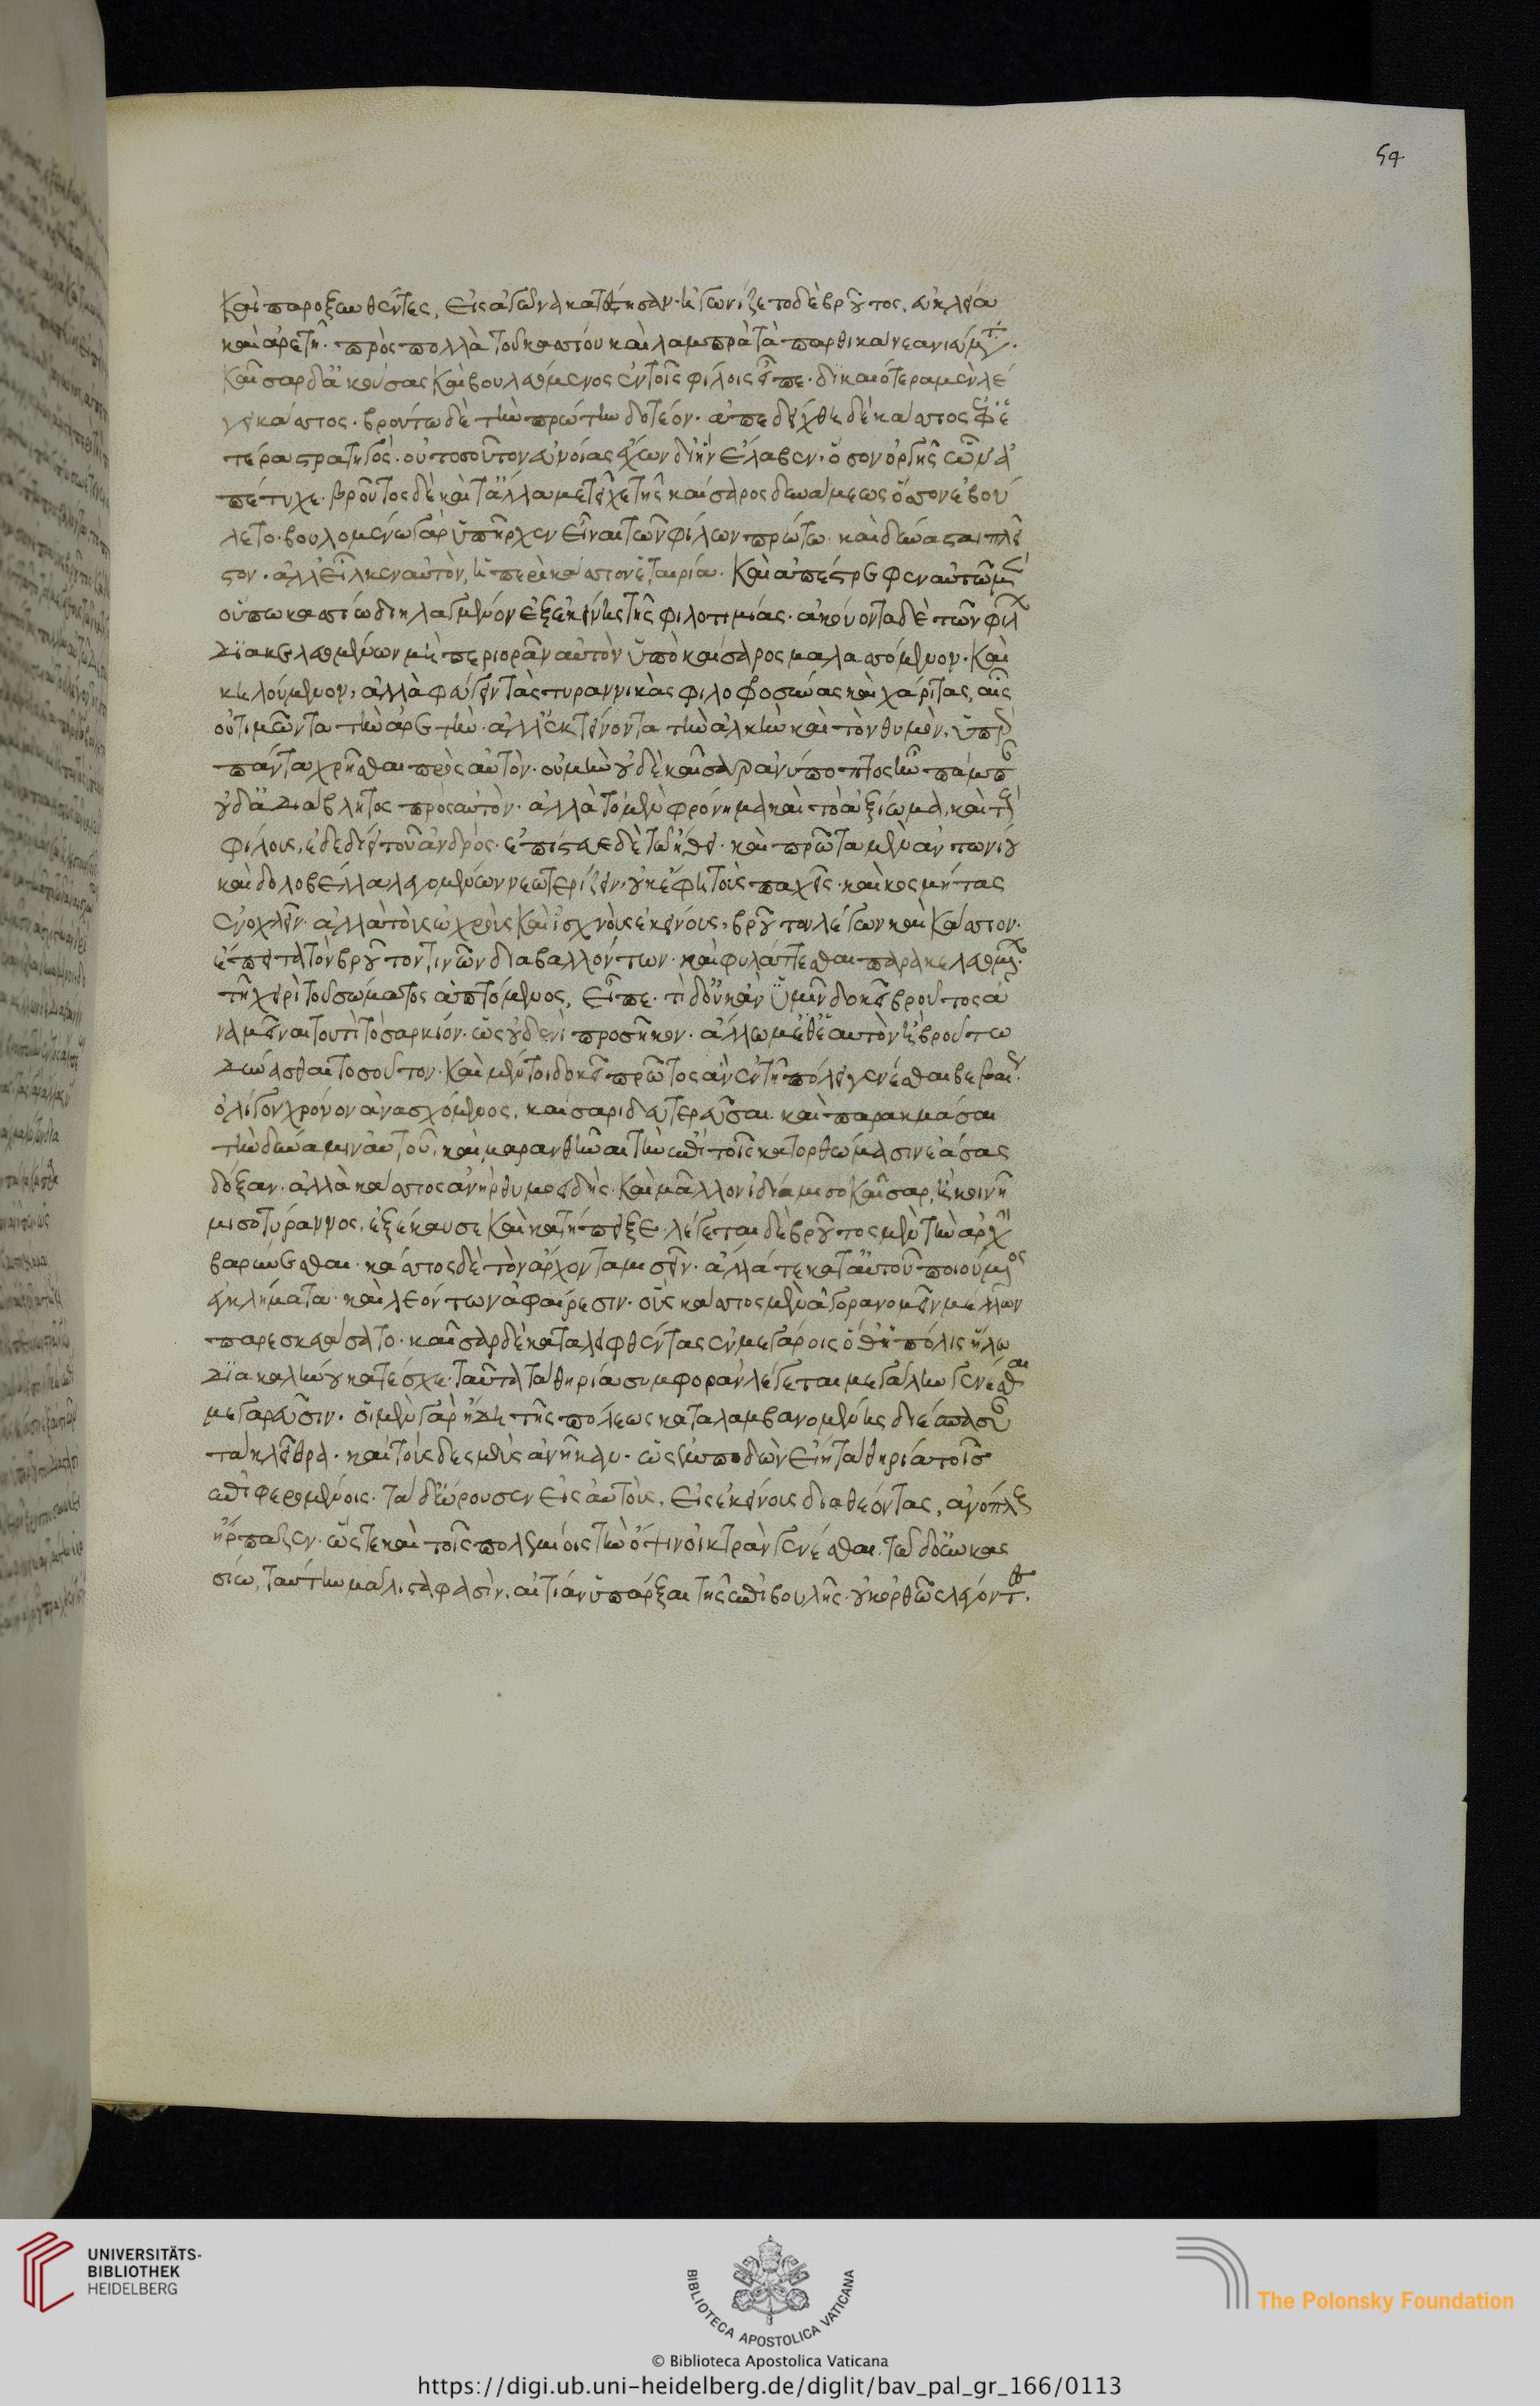 Καὶ παροξυνθέντες, εἰς ἀγῶνα κατέστησαν. ἠγωνίζετο δὲ βροῦτος, εὐκλεία
καὶ ἀρετῆ. πρὸς πολλὰ τοῦ κασσίου καὶ λαμπρὰ τὰ παρθικὰ νεανιεύματα.
Καῖσαρ δ' ἀκούσας καὶ βουλευόμενος ἐν τοῖς φίλοις εἶπε. δικαιότερα μὲν λέ
γει κάσσιος. βρούτω δὲ τὴν πρώτην δοτέον. ἀπεδείχθη δὲ κάσσιος ἐφ' ἑ
τέρα στρατηγός. οὐ τοσοῦτον εὐνοίας ἔχων δι' ἣν ἔλαβεν. ὅσον ὀργῆς ὧν ἀ
πέτυχε. βροῦτος δὲ καὶ τἄλλα μετεῖχε τῆς καίσαρος δυνάμεως ὅσον ἐβού
λετο. βουλομένω γὰρ ὑπῆρχεν εἶναι τῶν φίλων πρώτω. καὶ δύνασθαι πλεῖ
στον. ἀλλ' εἷλκεν αὐτὸν, ἡ περὶ κάσσιον ἑταιρία. Καὶ ἀπέστρεφεν αὐτῶ μὲν
οὔπω κασσίω διηλλαγμένον ἐξ ἐκείνης τῆς φιλοτιμίας. ἀκούοντα δὲ τῶν φίλων
διακελευομένων μὴ περιορᾶν αὐτὸν ὑπὸ καίσαρος μαλασσόμενον. Καὶ
κηλούμενον, ἀλλὰ φεύγειν τὰς τυραννικὰς φιλοφροσύνας καὶ χάριτας, αἷς
οὐ τιμῶντα τὴν ἀρετὴν. ἀλλ' ἐκτείνοντα τὴν ἀλκὴν καὶ τὸν θυμὸν. ὑπερ
πάντα χρῆσθαι πρὸς αὐτὸν. οὐ μὴν οὐδὲ καῖσαρ ἀνύποπτος ἦν πάμπαν
οὐδ' ἀδιάβλητος πρὸς αὐτὸν. ἀλλὰ τὸ μὲν φρόνημα καὶ τὸ ἀξίωμα, καὶ τοὺς
φίλους, ἐδεδίει τοῦ ἀνδρὸς. ἐπίστευε δὲ τῶ ἤθει. καὶ πρῶτα μὲν ἀντωνίου
καὶ δολοβέλλα λεγομένων νεωτερίζειν, οὐκ ἔφη τοὺς παχεῖς. καὶ κομήτας
ἐνοχλεῖν. ἀλλὰ τοὺς ὠχροὺς καὶ ἰσχνοὺς ἐκείνους, βροῦτον λέγων καὶ Κάσσιον.
ἔπειτα τὸν βροῦτον τινῶν διαβαλλόντων. καὶ φυλάττεσθαι παρακελευομένων.
τῆ χειρὶ τοῦ σώματος ἁπτόμενος, εἶπε. τί δ' οὐκ ἂν ὑμῖν δοκεῖ βροῦτος ἀ
ναμεῖναι τουτὶ τὸ σαρκίον. ὡς οὐδενὶ προσῆκον. ἄλλω μεθ' ἑαυτὸν ἢ βρούτω
δύνασθαι τοσοῦτον. Καὶ μέντοι δοκεῖ πρῶτος ἂν ἐν τῆ πόλει γενέσθαι βεβαίως
ὀλίγον χρόνον ἀνασχόμενος, καίσαρι δευτερεῦσαι. καὶ παρακμάσαι
τὴν δύναμιν αὐτοῦ, καὶ μαρανθῆναι τὴν ἐπὶ τοῖς κατορθώμασιν ἐάσας
δόξαν. ἀλλὰ κάσσιος ἀνὴρ θυμοειδὴς. Καὶ μᾶλλον ἰδία μισοκαῖσαρ, ἢ κοινῆ
μισοτύραννος, ἐξέκαυσε Καὶ κατήπειξε. λέγεται δὲ βροῦτος μὲν τὴν ἀρχὴν
βαρύνεσθαι. κάσσιος δὲ τὸν ἄρχοντα μισεῖν. ἄλλά τε κατ' αὐτοῦ ποιούμενος
ἐγκλήματα. καὶ λεόντων ἀφαίρεσιν. οὓς κάσσιος μὲν ἀγορανομεῖν μέλλων
παρεσκευάσατο. καῖσαρ δὲ καταλειφθέντας ἐν μεγάροις ὅθ' ἡ πόλις ἥλω
διὰ καληνοῦ κατέσχε. ταῦτα τὰ θηρία συμφορὰν λέγεται μεγάλην γενέσθαι
μεγαρεῦσιν. οἱ μὲν γὰρ ἤδη τῆς πόλεως καταλαμβανομένης διέσπασαν
τὰ κλεῖθρα. καὶ τοὺς δεσμοὺς ἀνῆκαν. ὡς ἐμποδὼν εἴη τὰ θηρία τοῖς
ἐπιφερομένοις. τὰ δ' ὤρουσεν εἰς αὐτοὺς, εἰς ἐκείνους διαθέοντας, ἀνόπλους
ἥρπαζεν. ὥστε καὶ τοῖς πολεμίοις τὴν ὄψιν οἰκτρὰν γενέσθαι. τῶ δ' οὖν κασ
σίω, ταύτην μάλιστά φασιν, αἰτίαν ὑπάρξαι τῆς ἐπιβουλῆς. οὐκ ὀρθῶς λέγοντες.
54
UNIVERSITÄTS-
BIBLIOTHEK
HEIDELBERG
BIBLIOTECA APOSTOLICA VATICANA
The Polonsky Foundation
© Biblioteca Apostolica Vaticana
https://digi.ub.uni-heidelberg.de/diglit/bav_pal_gr_166/0113